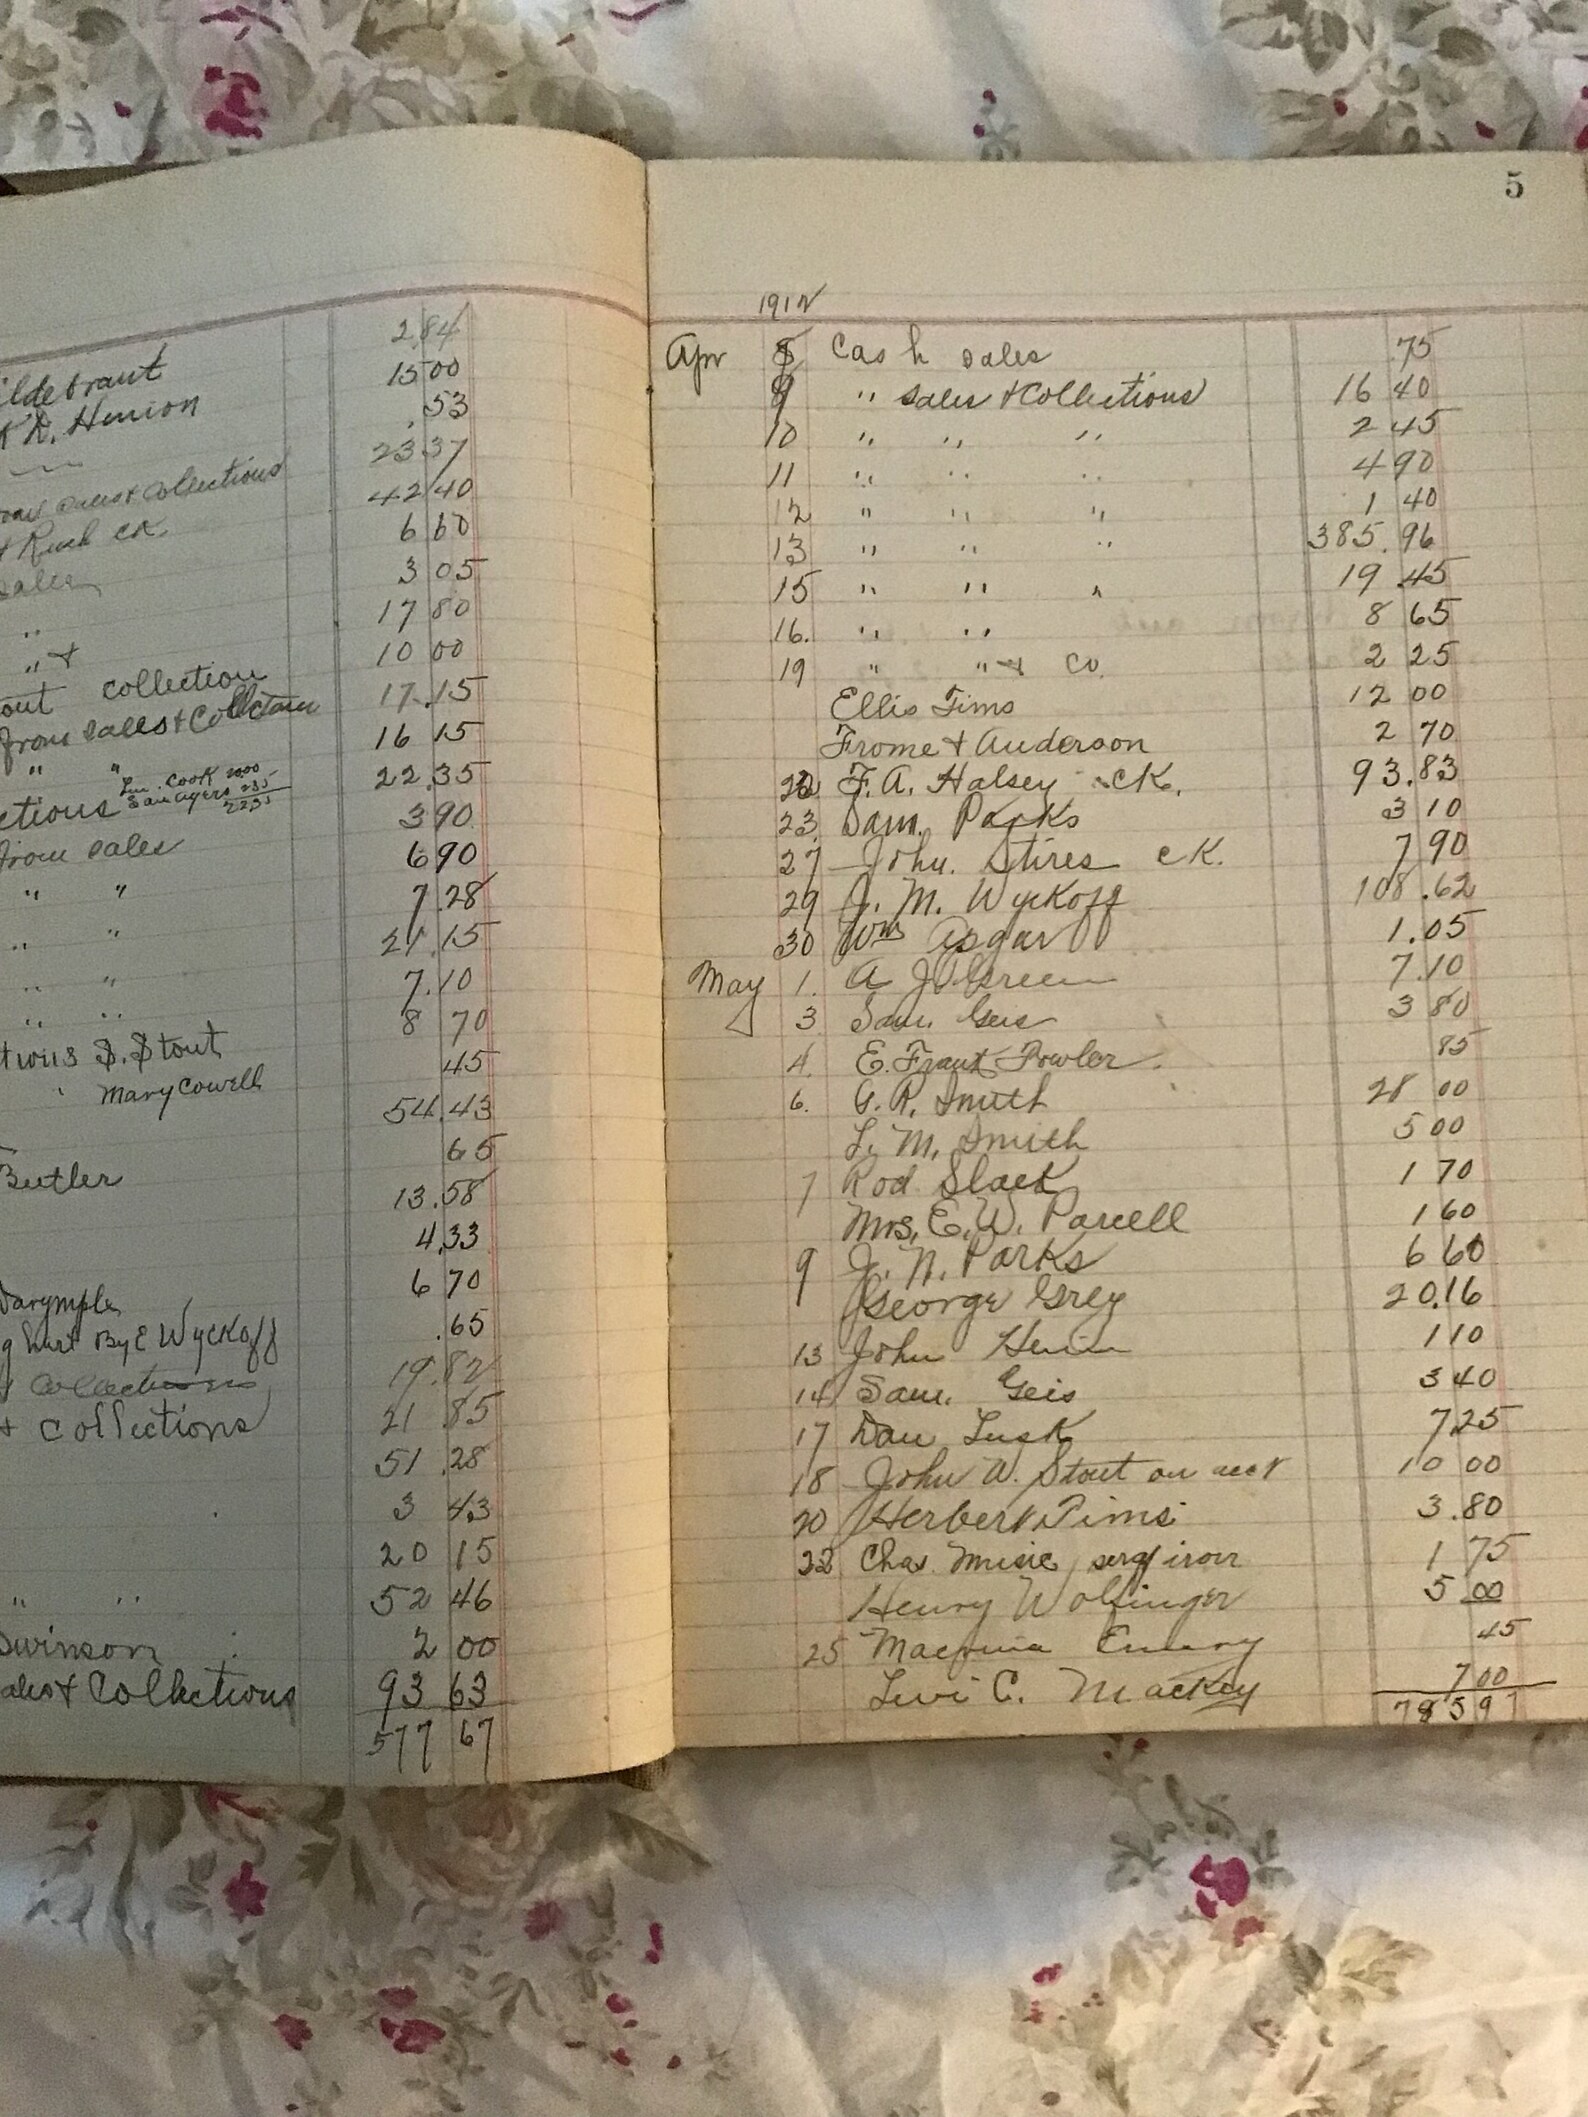 2.84
ildebraut 15 00
K D. Henion .53
23 37
sales & Collections 42 40
Rush cK. 6 60
sales 3 05
" 17 80
" & 10 00
out collection 17.15
from sales & Collections 16 15
" " 22.35
ctions Lm. Cook 2000
Sam Ayers 235
2235
3 90
from sales 6 90
" " 7.28
" " 21.15
" " 7.10
" " 8 70
tions S. Stout 45
" Mary Cowell 54.43
65
Butler 13.58
4.33
6 70
Darymple .65
By E Wyckoff 19.82
Collections 21 .85
& Collections 51 .28
3 43
20 15
" " 52 46
Swinson 2 00
ales & Collections 93 63
577 67
5
1912
Apr 8 Cash sales .75
9 " sales & Collections 16 40
10 " " " 2 45
11 " " " 4 90
12 " " " 1 40
13 " " " 385.96
15 " " " 19.45
16. " " 8 65
19 " " & Co. 2 25
Ellis Tims 12 00
Frome & Anderson 2 70
22 F. A. Halsey cK. 93.83
23 Sam. Parks 3 10
27 John. Stires cK. 7 90
29 J. M. Wyckoff 108.62
30 Wm Apgar 1.05
May 1. A J Green 7.10
3 Sam. Geis 3 80
4. E. Frank Fowler. 85
6. G. R. Smith 28 00
L. M. Smith 5 00
7 Rod Slack 1 70
Mrs. E. W. Parcell 1 60
9 J. N. Parks 6 60
George Grey 20.16
13 John 1 10
14 Sam. Geis 3 40
17 Dan Lusk 7.25
18 John W. Stout on acct 10 00
20 Herbert Tims 3.80
22 Chas. Music, 1 75
Henry Wolfinger 5 00
25 Macrina Emery 45
Levi C. Mackey 7 00
785 97